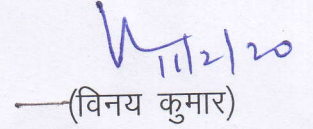 11/2/20
(विनय कुमार)